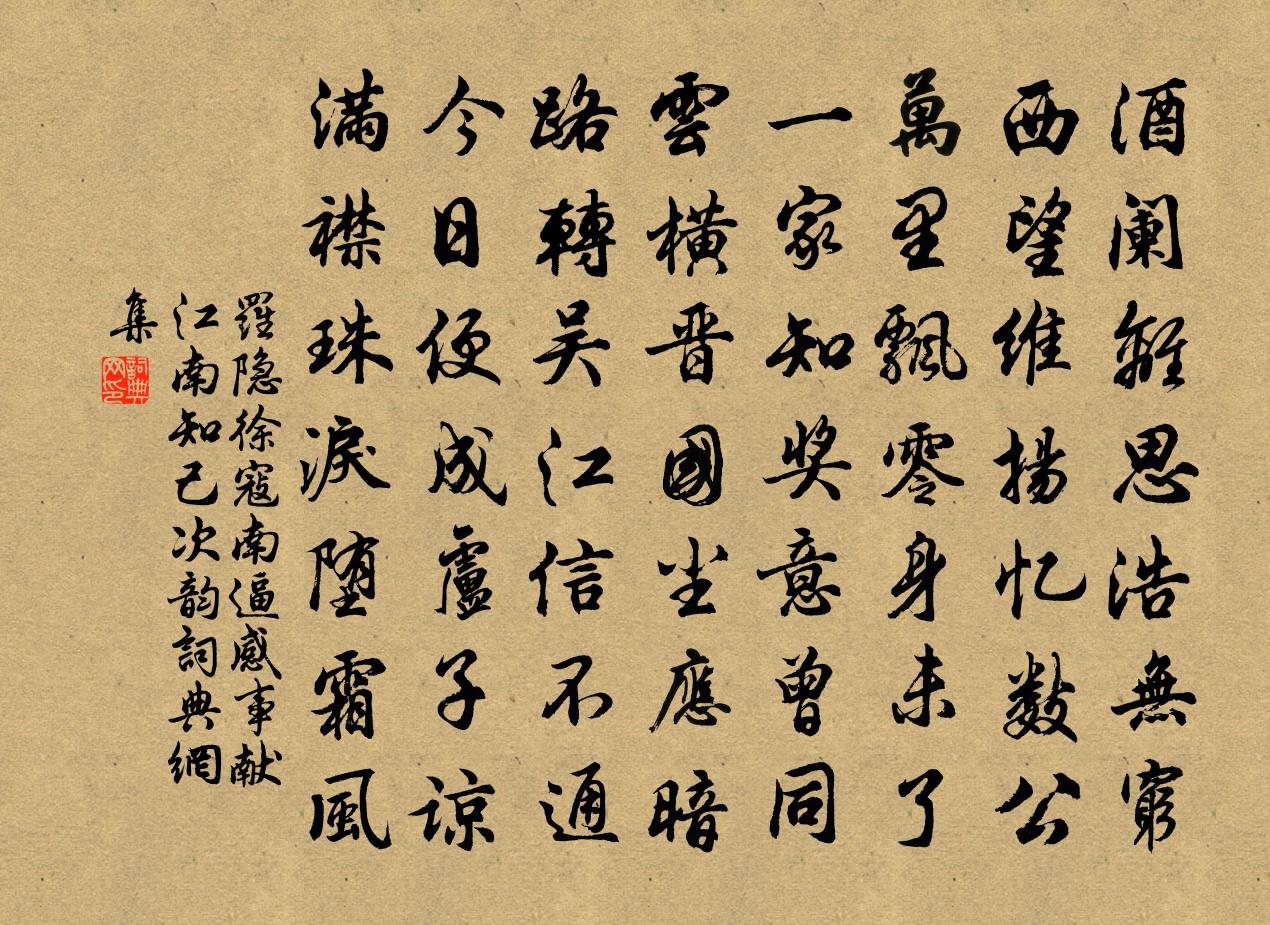 酒阑離思浩無窮
西望維揚忆數公
萬里飄零身未了
一家知奖意曾同
雲橫晋國尘應暗
路轉吴江信不通
今日便成盧子谅
滿襟珠淚堕霜風
羅隐徐寇南逼感事献
江南知己次韵詞典網
集
詞典
网印